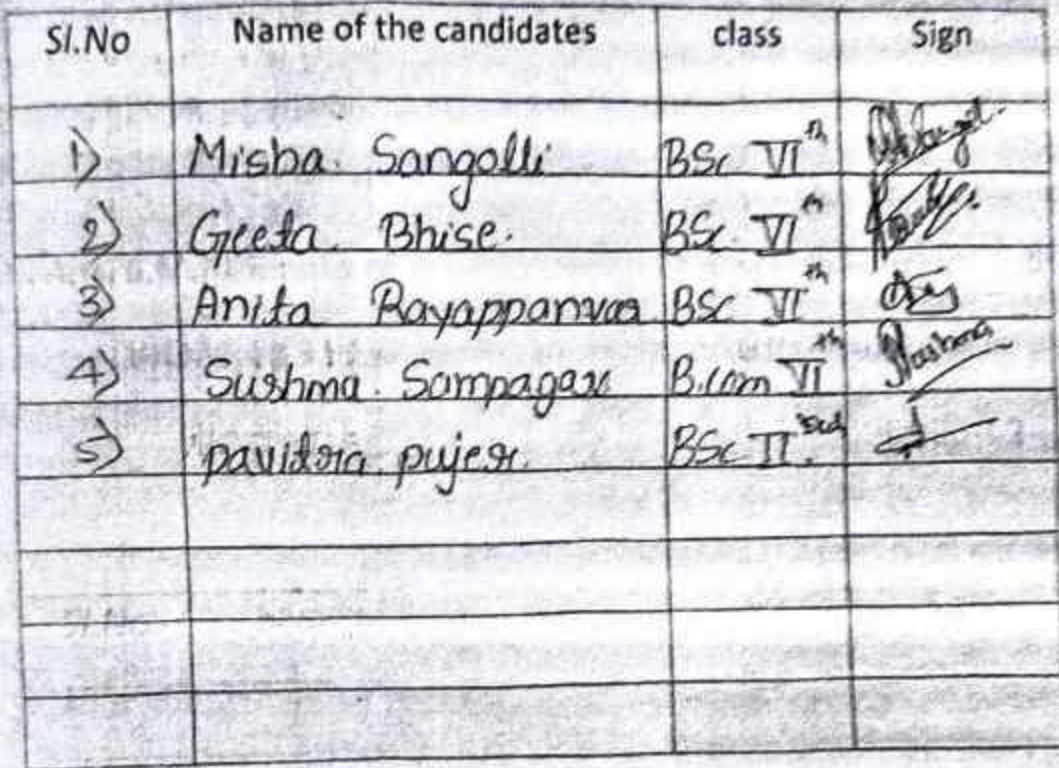 Sl.No Name of the candidates class Sign
1) Misba. Sangolli BSc VI th
2) Geeta. Bhise. BSc. VI th
3) Anita Rayappanvar BSc VI th
4) Sushma. Sampagar B.com VI th Sushma
5) pavitra. pujer. BSc II